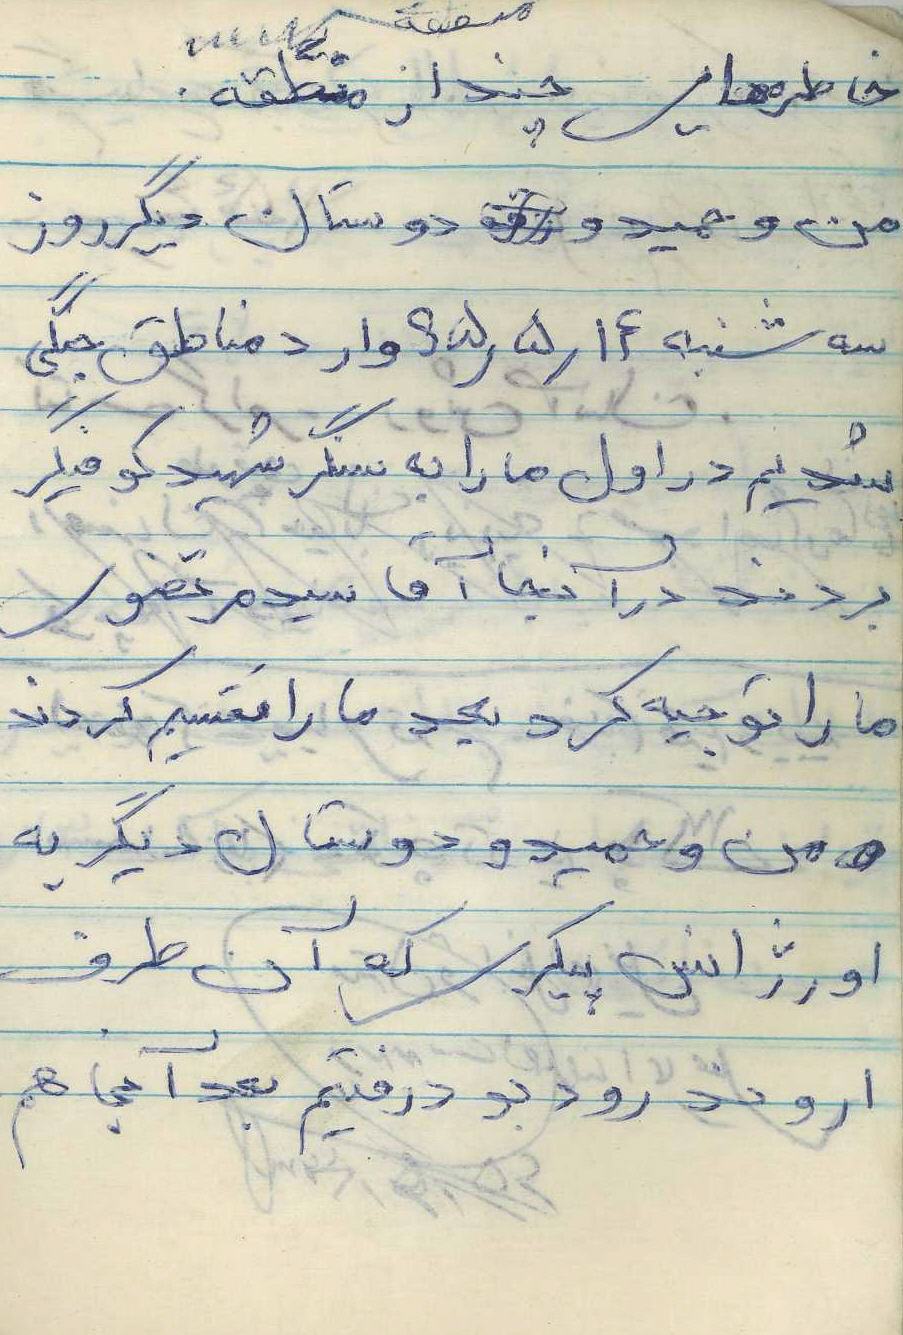 صفحه
خاطرهایی چند از منطقه.
من و حمید و دوستان دیگر روز
سه شنبه ۱۴ر۵ر۶۵ وارد مناطق جنگی
شدیم در اول ما را به سنگر شهید کوفیگر
بردند در آنجا آقا سید مرتضوی
ما را توجیه کرد بعد ما را تقسیم کردند
من و حمید و دوستان دیگر به
اورژانس پیکری که آن طرف
اروند رود بود رفتیم بعد آنجا هم